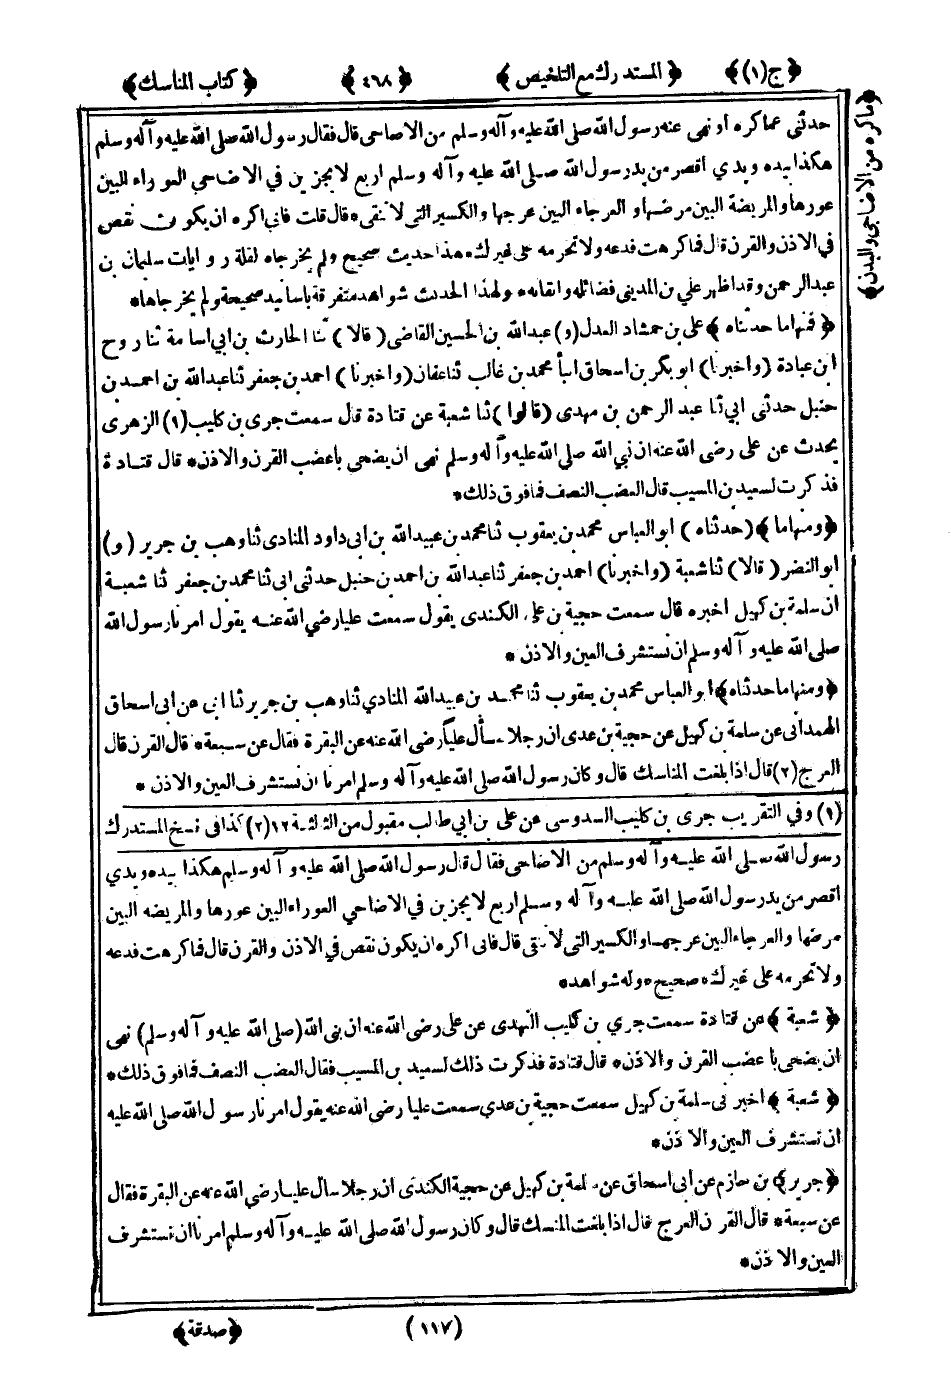 ﴿ج(١)﴾ ﴿المستدرك مع التلخيص﴾ ﴿٤٦٨﴾ ﴿كتاب المناسك﴾
﴿ما كره من الاضاحى والبدن﴾
حدثنى عما كره او نهى عنه رسول الله صلى الله عليه وآله وسلم من الاضاحى قال فقال رسول الله صلى الله عليه وآله وسلم
هكذا بيده ويدي اقصر من يد رسول الله صلى الله عليه وآله وسلم اربع لا يجزين في الاضاحي العوراء البين
عورها والمريضة البين مرضها والعرجاء البين عرجها والكسير التى لا تنقى * قال قلت فاني اكره ان يكون نقص
في الاذن والقرن قال فما كرهت فدعه ولا تحرمه على غيرك * هذا حديث صحيح ولم يخرجاه لقلة روايات سليمان بن
عبد الرحمن وقد اظهر علي بن المديني فضائله واتقانه * ولهذا الحديث شواهد متفرقة باسانيد صحيحة ولم يخرجاها *
﴿فمنها ما حدثناه﴾ على بن حمشاد العدل (و) عبد الله بن الحسين القاضى (قالا) ثنا الحارث بن ابى اسامة ثنا روح
ابن عبادة (واخبرنا) ابو بكر بن اسحاق انبأ محمد بن غالب ثنا عفان (واخبرنا) احمد بن جعفر ثنا عبد الله بن احمد بن
حنبل حدثنى ابي ثنا عبد الرحمن بن مهدى (قالوا) ثنا شعبة عن قتادة قال سمعت جرى بن كليب (١) الزهرى
يحدث عن على رضى الله عنه ان نبي الله صلى الله عليه وآله وسلم نهى ان يضحى باعضب القرن والاذن * قال قتادة
فذكرت لسعيد بن المسيب قال العضب النصف فما فوق ذلك *
﴿ومنها ما﴾ (حدثناه) ابو العباس محمد بن يعقوب ثنا محمد بن عبيد الله بن ابى داود المنادى ثنا وهب بن جرير (و)
ابو النضر (قالا) ثنا شعبة (واخبرنا) احمد بن جعفر ثنا عبد الله بن احمد بن حنبل حدثنى ابى ثنا محمد بن جعفر ثنا شعبة
ان سلمة بن كهيل اخبره قال سمعت حجية بن على الكندى يقول سمعت عليا رضي الله عنه يقول امرنا رسول الله
صلى الله عليه وآله وسلم ان نستشرف العين والاذن *
﴿ومنها ما حدثناه﴾ ابو العباس محمد بن يعقوب ثنا محمد بن عبيد الله المنادي ثنا وهب بن جرير ثنا ابى عن ابى اسحاق
الهمدانى عن سلمة بن كهيل عن حجية بن عدى ان رجلا سأل علياً رضى الله عنه عن البقرة فقال عن سبعة * قال القرن قال
العرج (٢) قال اذا بلغت المناسك قال وكان رسول الله صلى الله عليه وآله وسلم امرنا ان نستشرف العين والاذن *
(١) وفي التقريب جرى بن كليب السدوسى عن على بن ابي طالب مقبول من الثالثة ١٢ (٢) كذا فى نسخ المستدرك
رسول الله صلى الله عليه وآله وسلم من الاضاحى فقال قال رسول الله صلى الله عليه وآله وسلم هكذا بيده ويدي
اقصر من يد رسول الله صلى الله عليه وآله وسلم اربع لا يجزين في الاضاحي العوراء البين عورها والمريضه البين
مرضها والعرجاء البين عرجها والكسير التى لا تنقى قال فانى اكره ان يكون نقص في الاذن والقرن قال فما كرهت فدعه
ولا تحرمه على غيرك * صحيح * وله شواهد *
﴿شعبة﴾ عن قتادة سمعت جري بن كليب النهدى عن على رضى الله عنه ان نبى الله (صلى الله عليه وآله وسلم) نهى
ان يضحى باعضب القرن والاذن * قال قتادة فذكرت ذلك لسعيد بن المسيب فقال العضب النصف فما فوق ذلك *
﴿شعبة﴾ اخبرنى سلمة بن كهيل سمعت حجية بن عدي سمعت عليا رضى الله عنه يقول امرنا رسول الله صلى الله عليه
ان نستشرف العين والاذن *
﴿جرير﴾ بن حازم عن ابى اسحاق عن سلمة بن كهيل عن حجية الكندى ان رجلا سال عليا رضى الله عنه عن البقرة فقال
عن سبعة * قال القرن العرج قال اذا بلغت المنسك قال وكان رسول الله صلى الله عليه وآله وسلم امرنا ان نستشرف
العين والاذن *
(١١٧) ﴿صدقة﴾